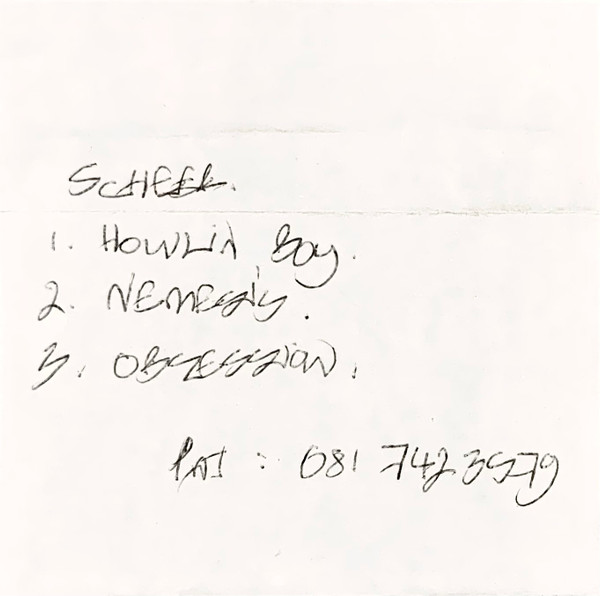 SCHEER.
1. HOWLIN' BOY.
2. NEMESIS.
3. OBSESSION.
PAT : 081 7423579